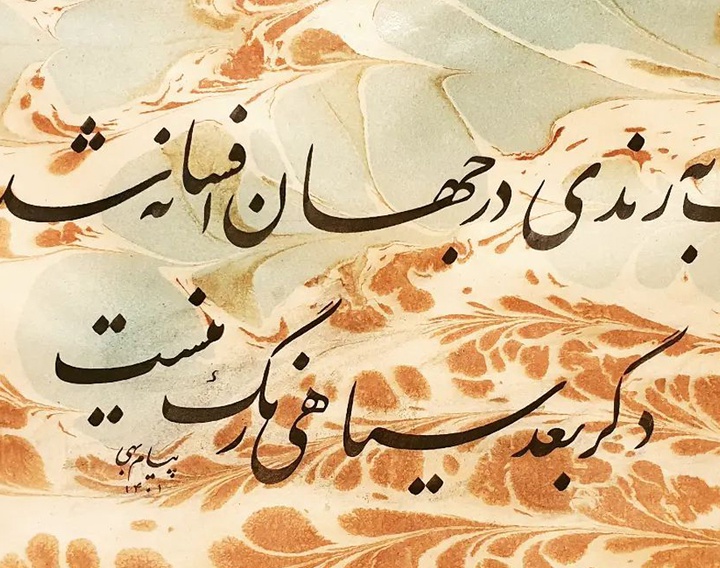 به رندی در جهان افسانه شد
دگر بعد سیاهی رنگ نیست
پیام بهی
۱۴۰۱